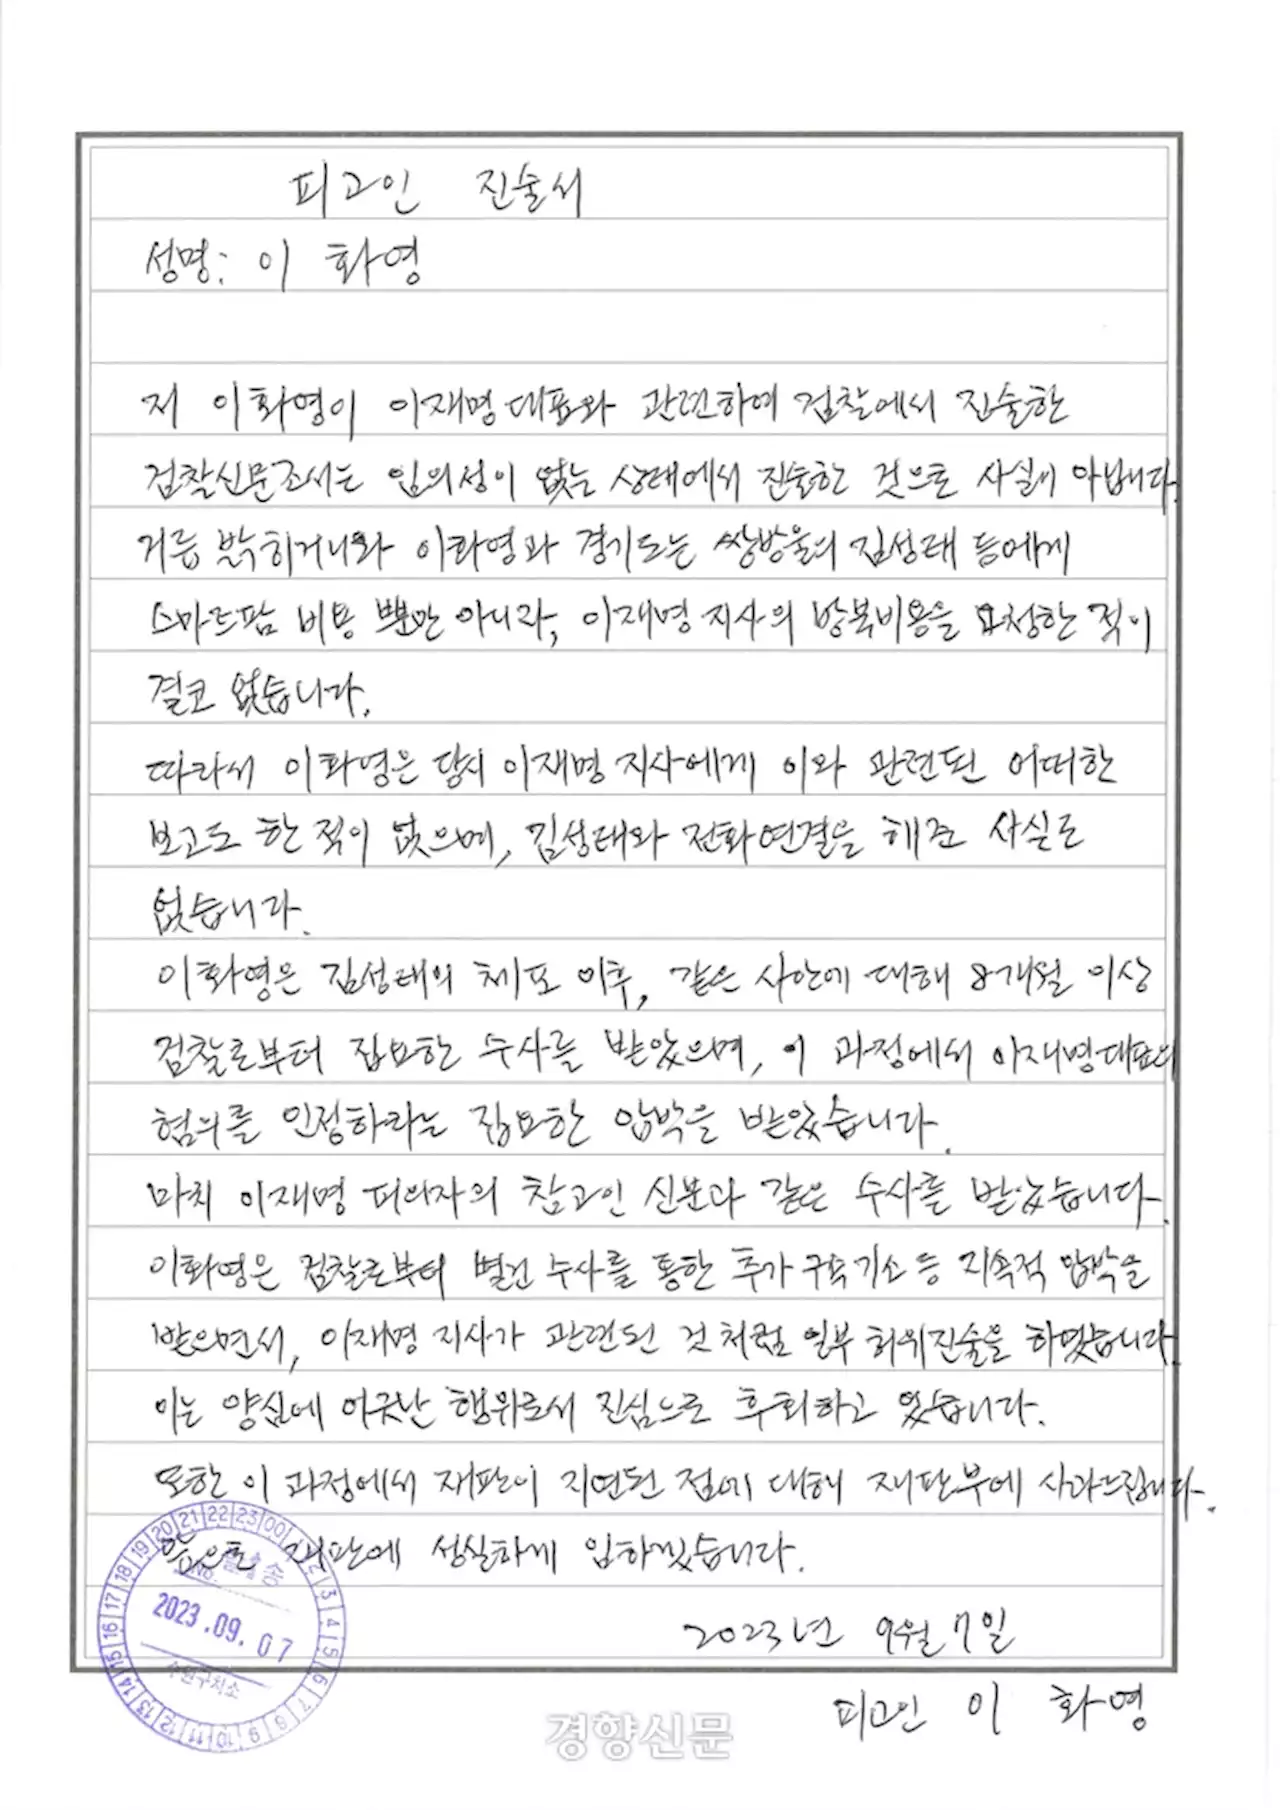 피고인 진술서
성명: 이 화영
저 이화영이 이재명대표와 관련하여 검찰에서 진술한
검찰신문조서는 임의성이 없는 상태에서 진술한 것으로 사실이 아닙니다.
거듭 밝히거니와 이화영과 경기도는 쌍방울의 김성태 등에게
스마트팜 비용 뿐만 아니라, 이재명 지사의 방북비용을 요청한 적이
결코 없습니다.
따라서 이화영은 당시 이재명 지사에게 이와 관련된 어떠한
보고도 한 적이 없으며, 김성태와 전화연결을 해준 사실도
없습니다.
이화영은 김성태의 체포 이후, 같은 사안에 대해 8개월 이상
검찰로부터 집요한 수사를 받았으며, 이 과정에서 이재명대표의
혐의를 인정하라는 집요한 압박을 받았습니다.
마치 이재명 피의자의 참고인 신분과 같은 수사를 받았습니다.
이화영은 검찰로부터 별건 수사를 통한 추가 구속기소 등 지속적 압박을
받으면서, 이재명 지사가 관련된 것처럼 일부 허위진술을 하였습니다.
이는 양심에 어긋난 행위로서 진심으로 후회하고 있습니다.
또한 이 과정에서 재판이 지연된 점에 대해 재판부에 사과드립니다.
앞으로 재판에 성실하게 임하겠습니다.
2023년 9월 7일
피고인 이 화영
00 2 3 4 5 6 7 8 9 10 11 12 13 14 15 16 17 18 19 20 21 22 23
No.
발송
2023.09.07
수원구치소
경향신문